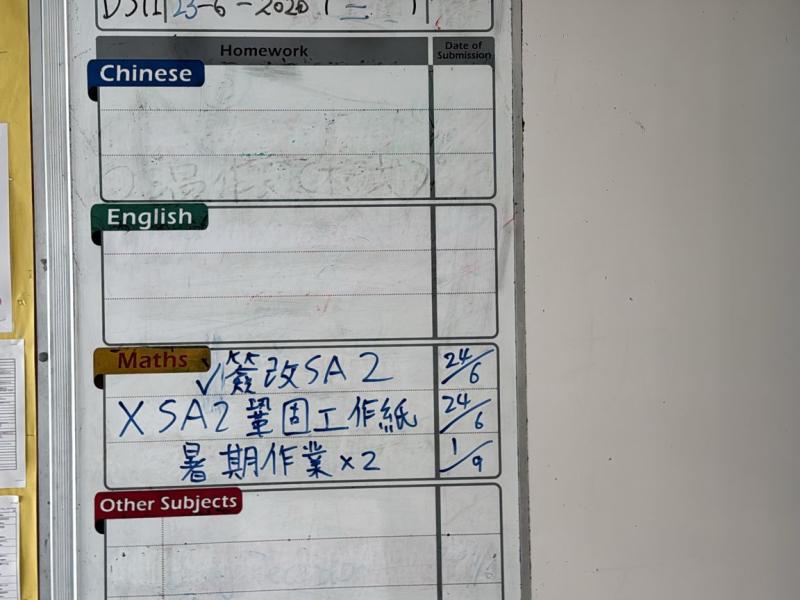 23-6-2020 (二)
Homework
Date of Submission
Chinese
English
Maths
✓簽改SA2 24/6
X SA2 鞏固工作紙 24/6
暑期作業 x2 1/9
Other Subjects